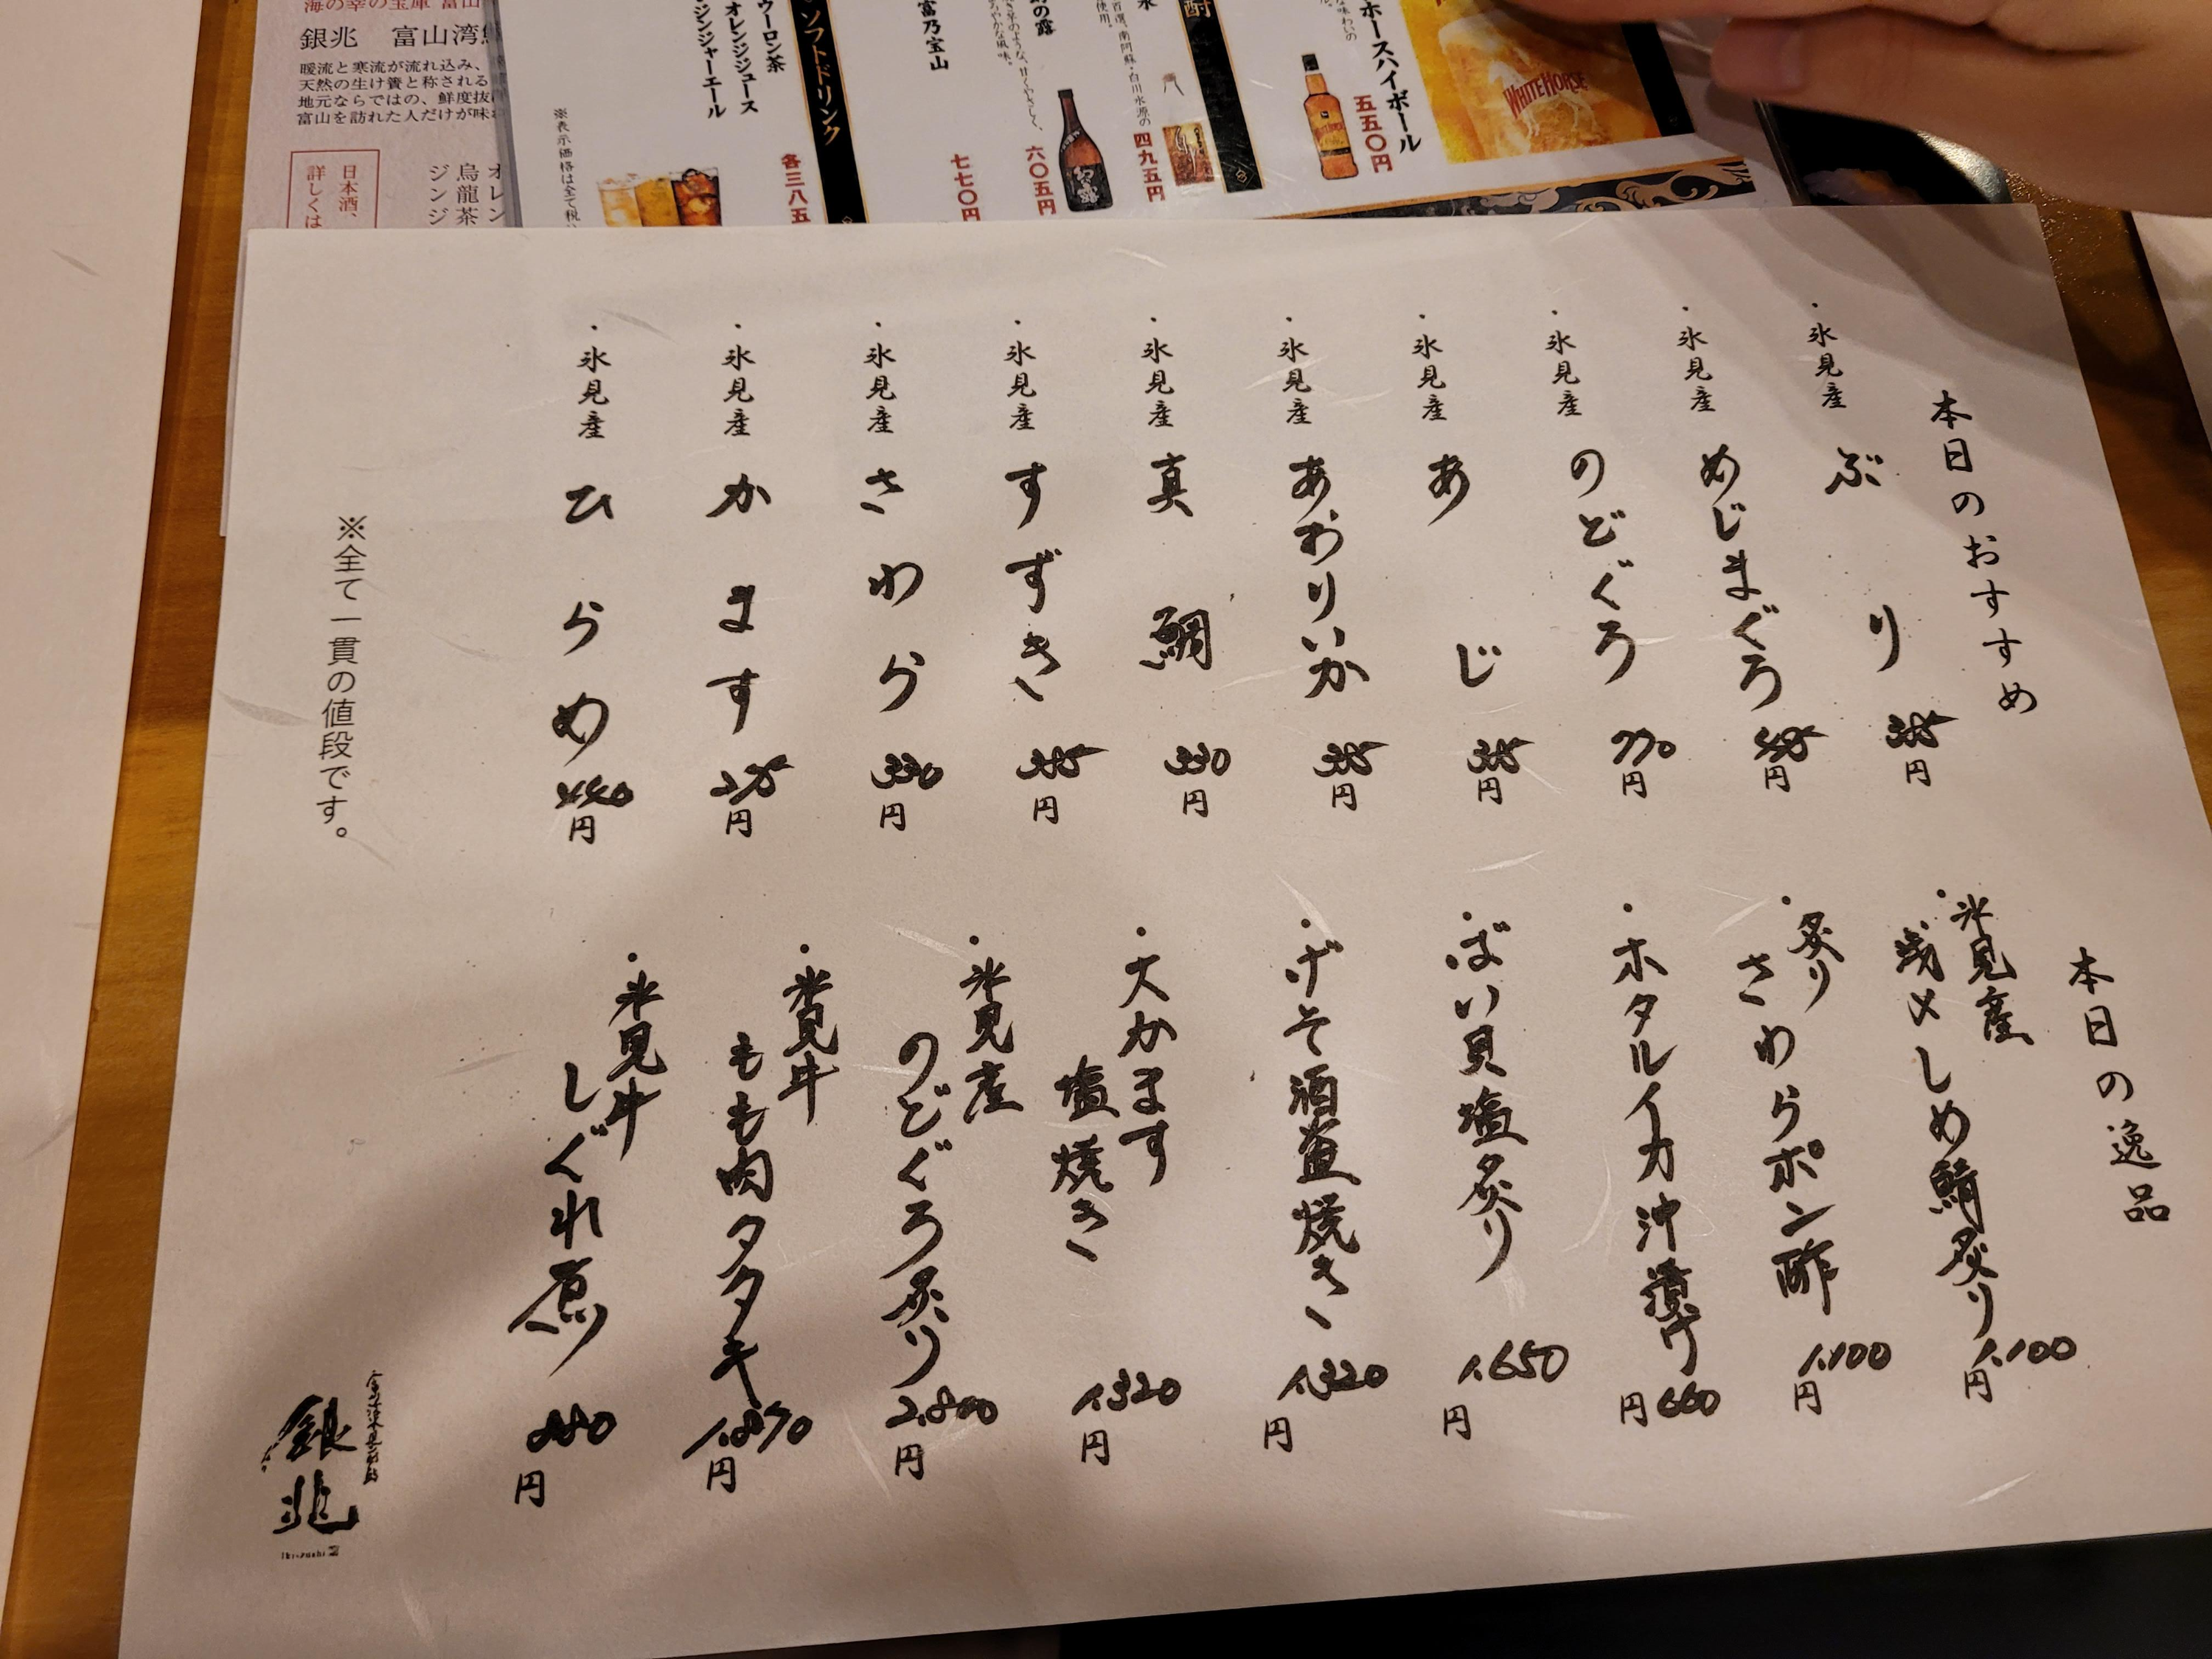 銀兆　富山湾
暖流と寒流が流れ込み、
天然の生け簀と称される
地元ならではの、鮮度抜
富山を訪れた人だけが味
日本酒、
詳しくは
オレン
烏龍茶
ジンジ
ホースハイボール
五五〇円
WHITE HORSE
四九五円
の露
六〇五円
富乃宝山
七七〇円
ソフトドリンク
ウーロン茶
オレンジジュース
ジンジャーエール
各三八五
※表示価格は全て税
本日のおすすめ
・氷見産 ぶり 385円
・氷見産 めじまぐろ 495円
・氷見産 のどぐろ 770円
・氷見産 あじ 385円
・氷見産 あおりいか 385円
・氷見産 真鯛 330円
・氷見産 すずき 385円
・氷見産 さわら 330円
・氷見産 かます 275円
・氷見産 ひらめ 440円
※全て一貫の値段です。
本日の逸品
・氷見産
浅〆しめ鯖炙り 1,100円
・炙り
さわらポン酢 1,100円
・ホタルイカ沖漬け 660円
・ばい貝塩炙り 1,650円
・げそ酒盗焼き 1,320円
・大かます
塩焼き 1,320円
・氷見産
のどぐろ炙り 2,800円
・氷見牛
もも肉タタキ 1,870円
・氷見牛
しぐれ煮 880円
銀兆